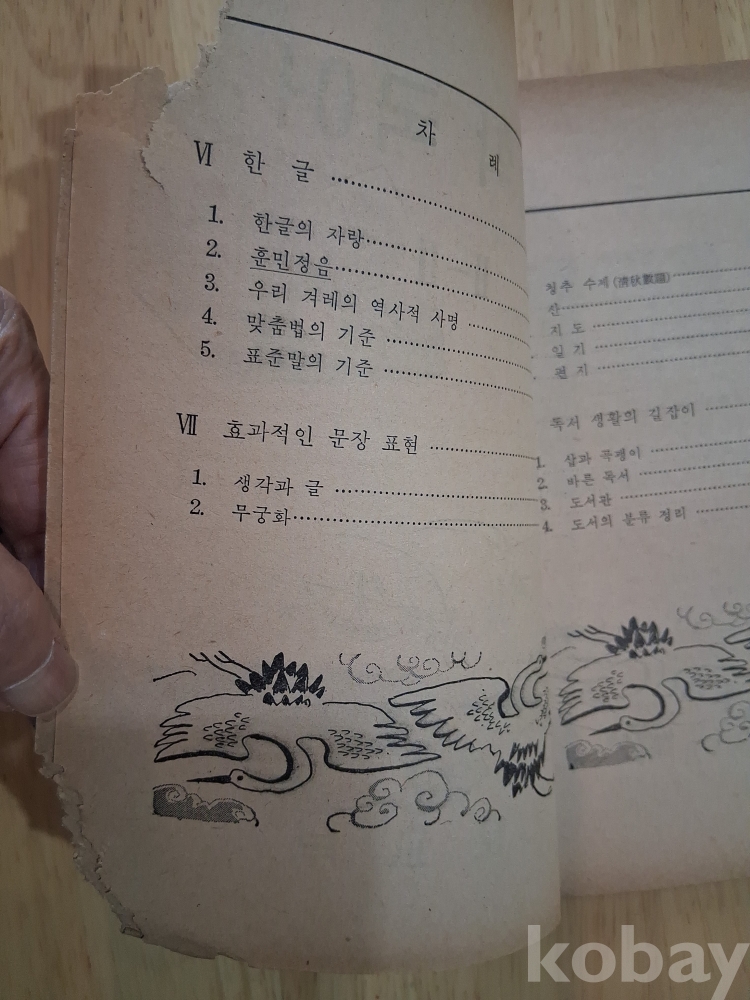 차 례
Ⅵ 한 글
1. 한글의 자랑
2. 훈민정음
3. 우리 겨레의 역사적 사명
4. 맞춤법의 기준
5. 표준말의 기준
Ⅶ 효과적인 문장 표현
1. 생각과 글
2. 무궁화
청추 수제
산
지 도
일 기
편 지
독서 생활의 길잡이
1. 삽과 곡괭이
2. 바른 독서
3. 도서관
4. 도서의 분류 정리
kobay